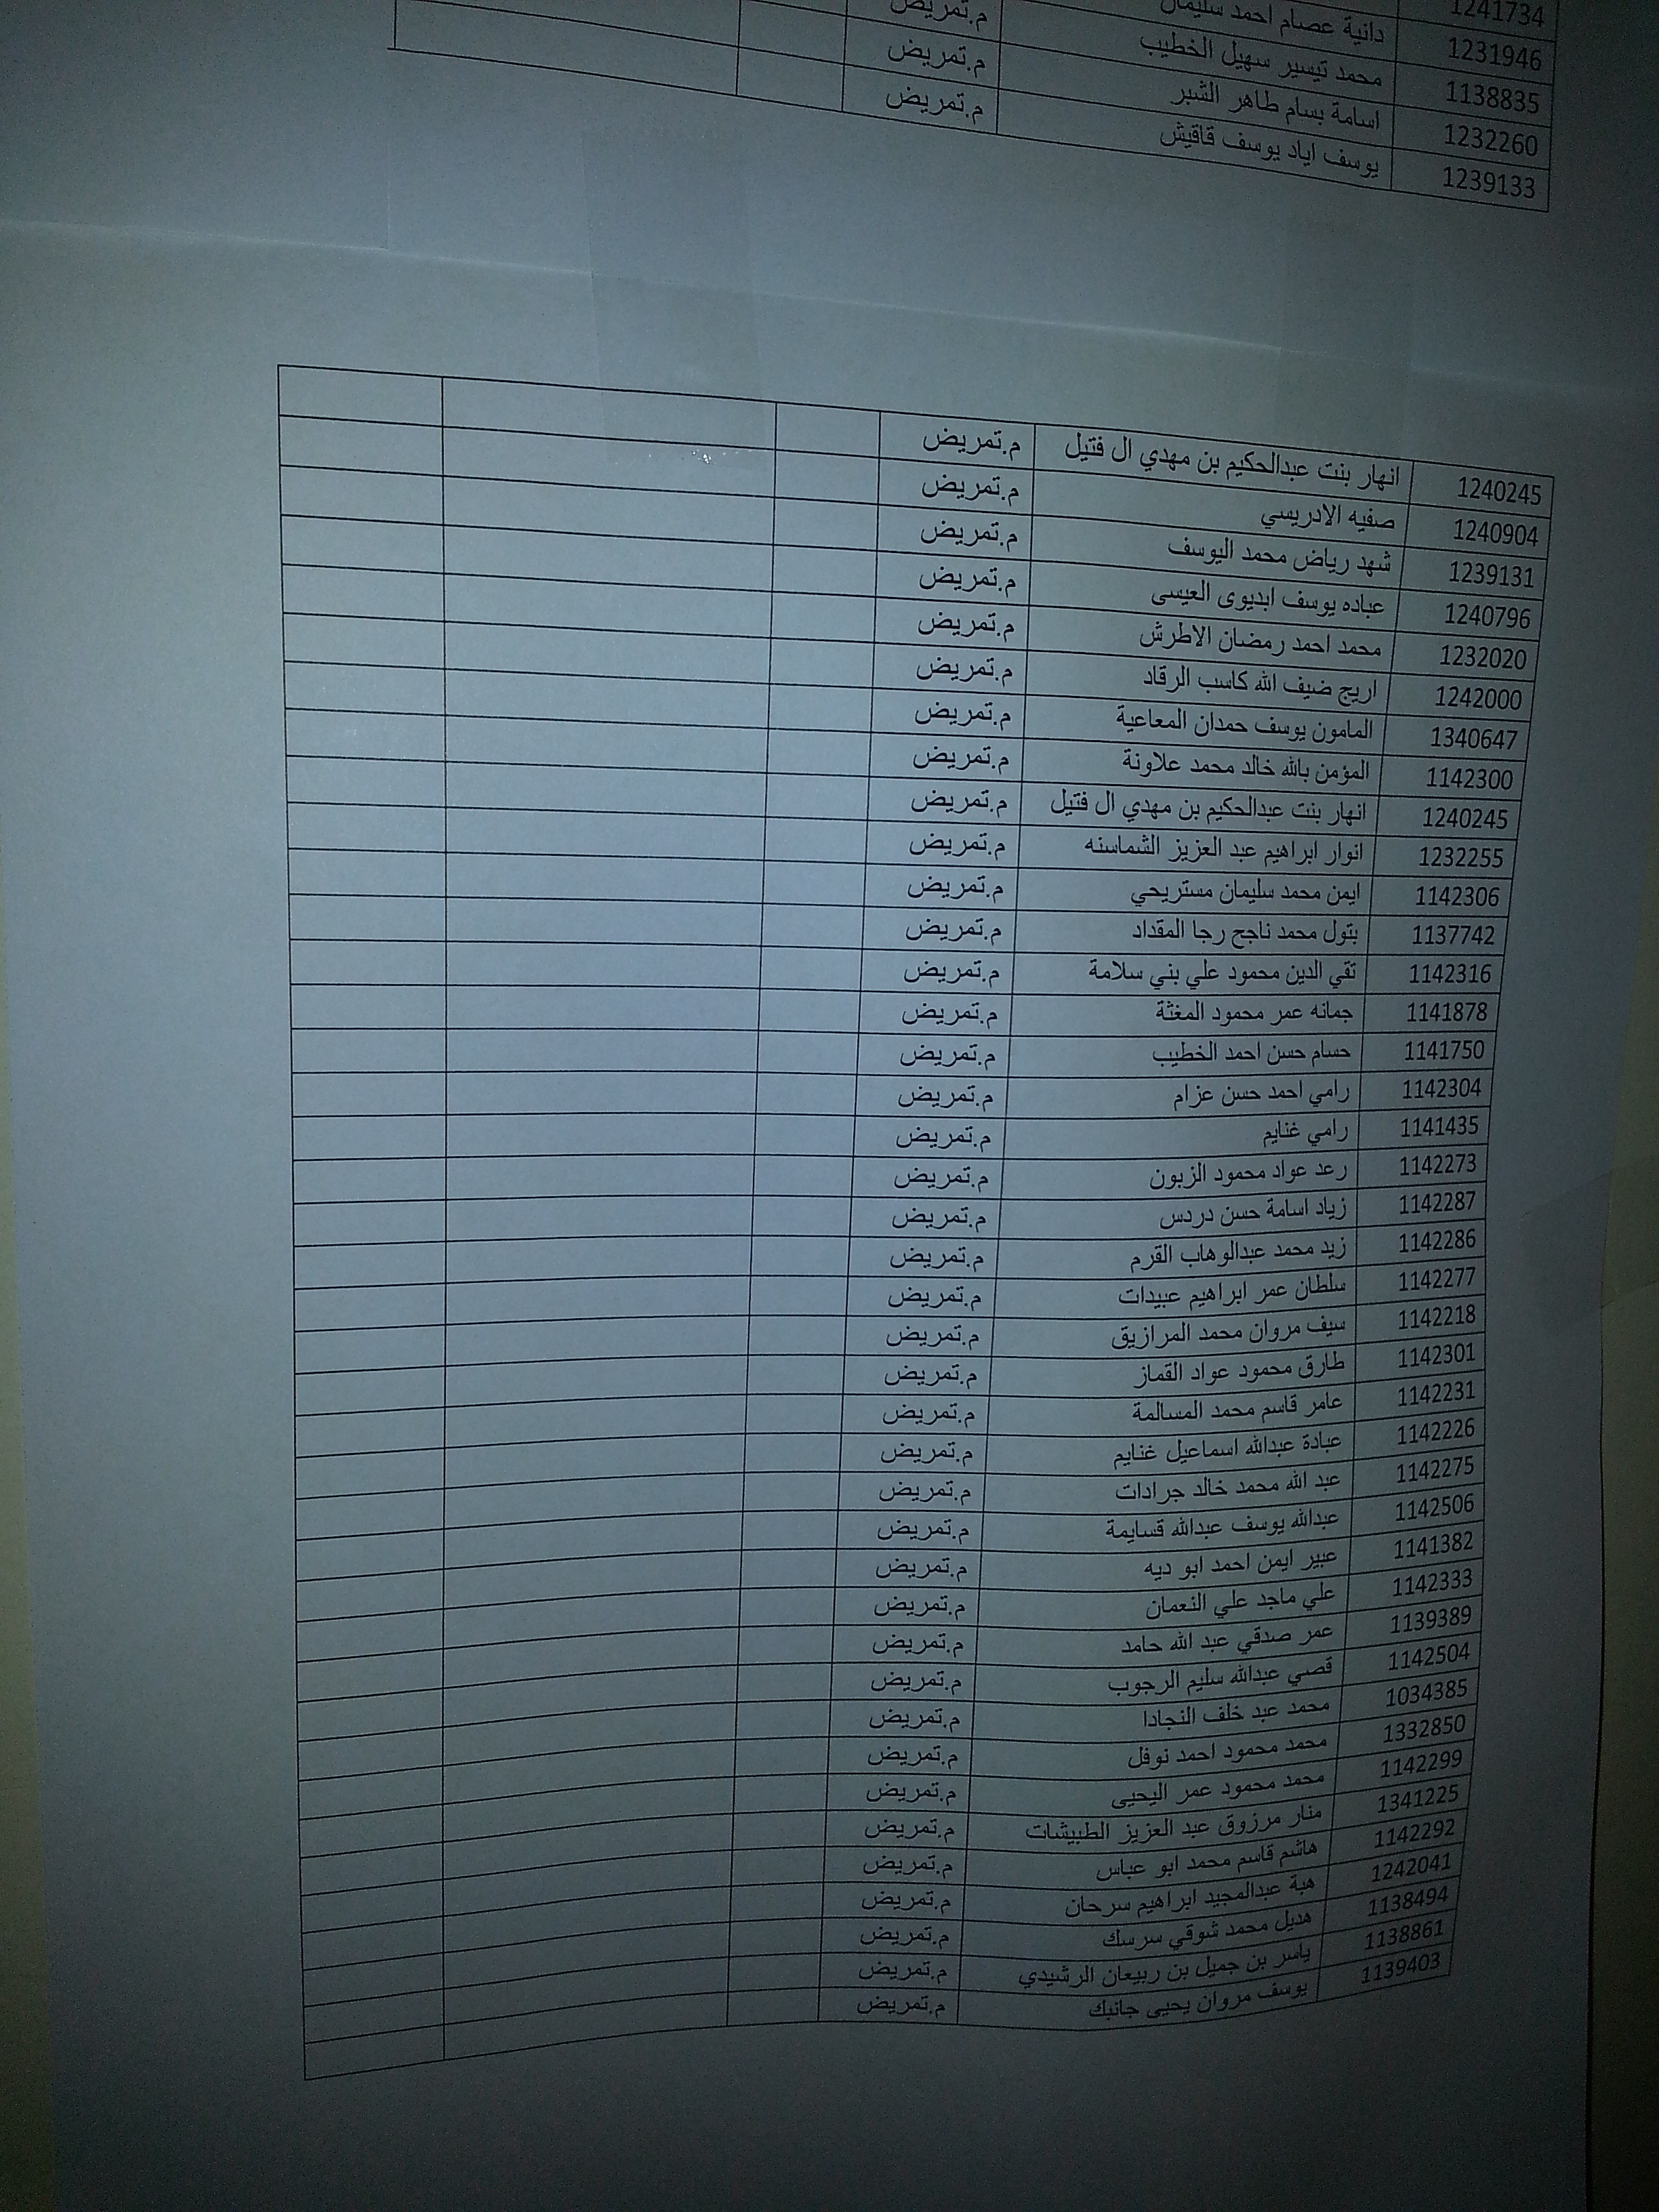 1241734
1231946 دانية عصام احمد سليمان م.تمريض
1138835 محمد تيسير سهيل الخطيب م.تمريض
1232260 اسامة بسام طاهر الشبر م.تمريض
1239133 يوسف اياد يوسف قاقيش
1240245 انهار بنت عبدالحكيم بن مهدي ال فتيل م.تمريض
1240904 صفيه الادريسي م.تمريض
1239131 شهد رياض محمد اليوسف م.تمريض
1240796 عباده يوسف ابديوى العيسى م.تمريض
1232020 محمد احمد رمضان الاطرش م.تمريض
1242000 اريج ضيف الله كاسب الرقاد م.تمريض
1340647 المامون يوسف حمدان المعاعية م.تمريض
1142300 المؤمن بالله خالد محمد علاونة م.تمريض
1240245 انهار بنت عبدالحكيم بن مهدي ال فتيل م.تمريض
1232255 انوار ابراهيم عبد العزيز الشماسنه م.تمريض
1142306 ايمن محمد سليمان مستريحي م.تمريض
1137742 بتول محمد ناجح رجا المقداد م.تمريض
1142316 تقي الدين محمود علي بني سلامة م.تمريض
1141878 جمانه عمر محمود المغثة م.تمريض
1141750 حسام حسن احمد الخطيب م.تمريض
1142304 رامي احمد حسن عزام م.تمريض
1141435 رامي غنايم م.تمريض
1142273 رعد عواد محمود الزبون م.تمريض
1142287 زياد اسامة حسن دردس م.تمريض
1142286 زيد محمد عبدالوهاب القرم م.تمريض
1142277 سلطان عمر ابراهيم عبيدات م.تمريض
1142218 سيف مروان محمد المرازيق م.تمريض
1142301 طارق محمود عواد القماز م.تمريض
1142231 عامر قاسم محمد المسالمة م.تمريض
1142226 عبادة عبدالله اسماعيل غنايم م.تمريض
1142275 عبد الله محمد خالد جرادات م.تمريض
1142506 عبدالله يوسف عبدالله قسايمة م.تمريض
1141382 عبير ايمن احمد ابو ديه م.تمريض
1142333 علي ماجد علي النعمان م.تمريض
1139389 عمر صدقي عبد الله حامد م.تمريض
1142504 قصي عبدالله سليم الرجوب م.تمريض
1034385 محمد عبد خلف النجادا م.تمريض
1332850 محمد محمود احمد نوفل م.تمريض
1142299 محمد محمود عمر اليحيى م.تمريض
1341225 منار مرزوق عبد العزيز الطبيشات م.تمريض
1142292 هاشم قاسم محمد ابو عباس م.تمريض
1242041 هبة عبدالمجيد ابراهيم سرحان م.تمريض
1138494 هديل محمد شوقي سرسك م.تمريض
1138861 ياسر بن جميل بن ربيعان الرشيدي م.تمريض
1139403 يوسف مروان يحيى جانبك م.تمريض